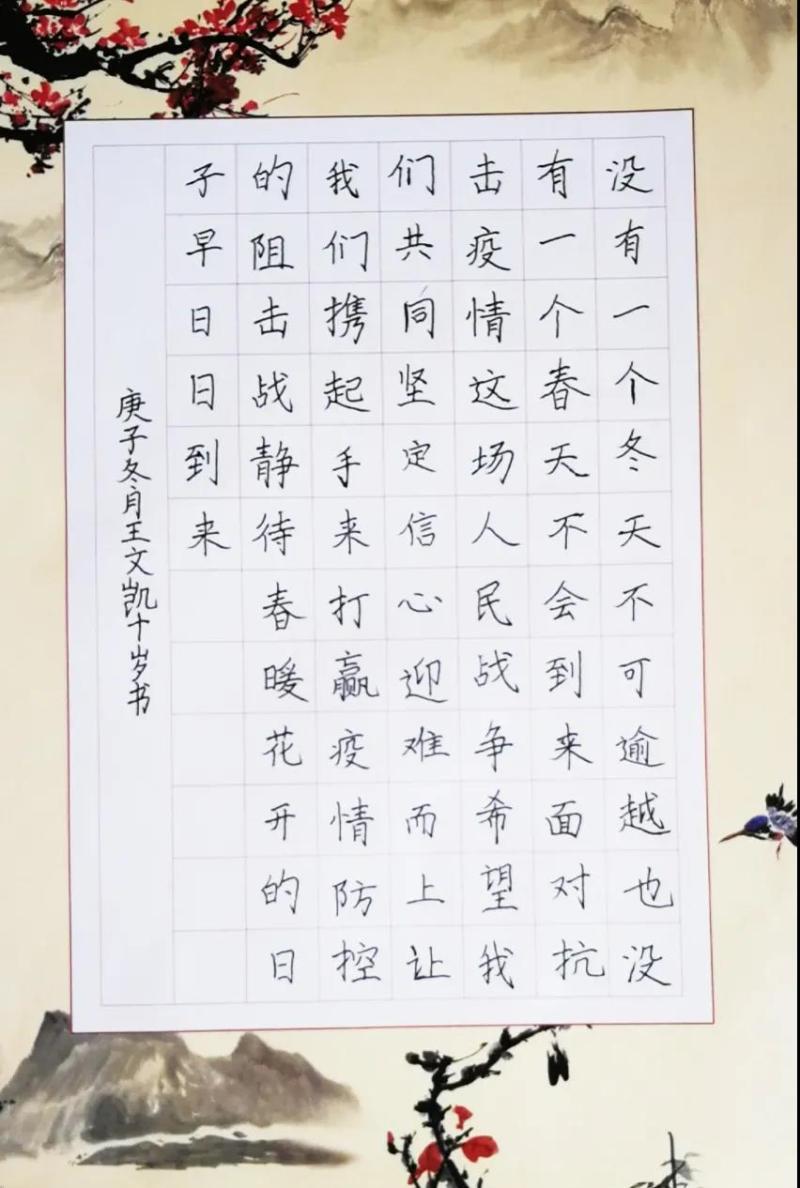 没有一个冬天不可逾越也没
有一个春天不会到来面对抗
击疫情这场人民战争希望我
们共同坚定信心迎难而上让
我们携起手来打赢疫情防控
的阻击战静待春暖花开的日
子早日日到来
庚子冬月王文凯十岁书